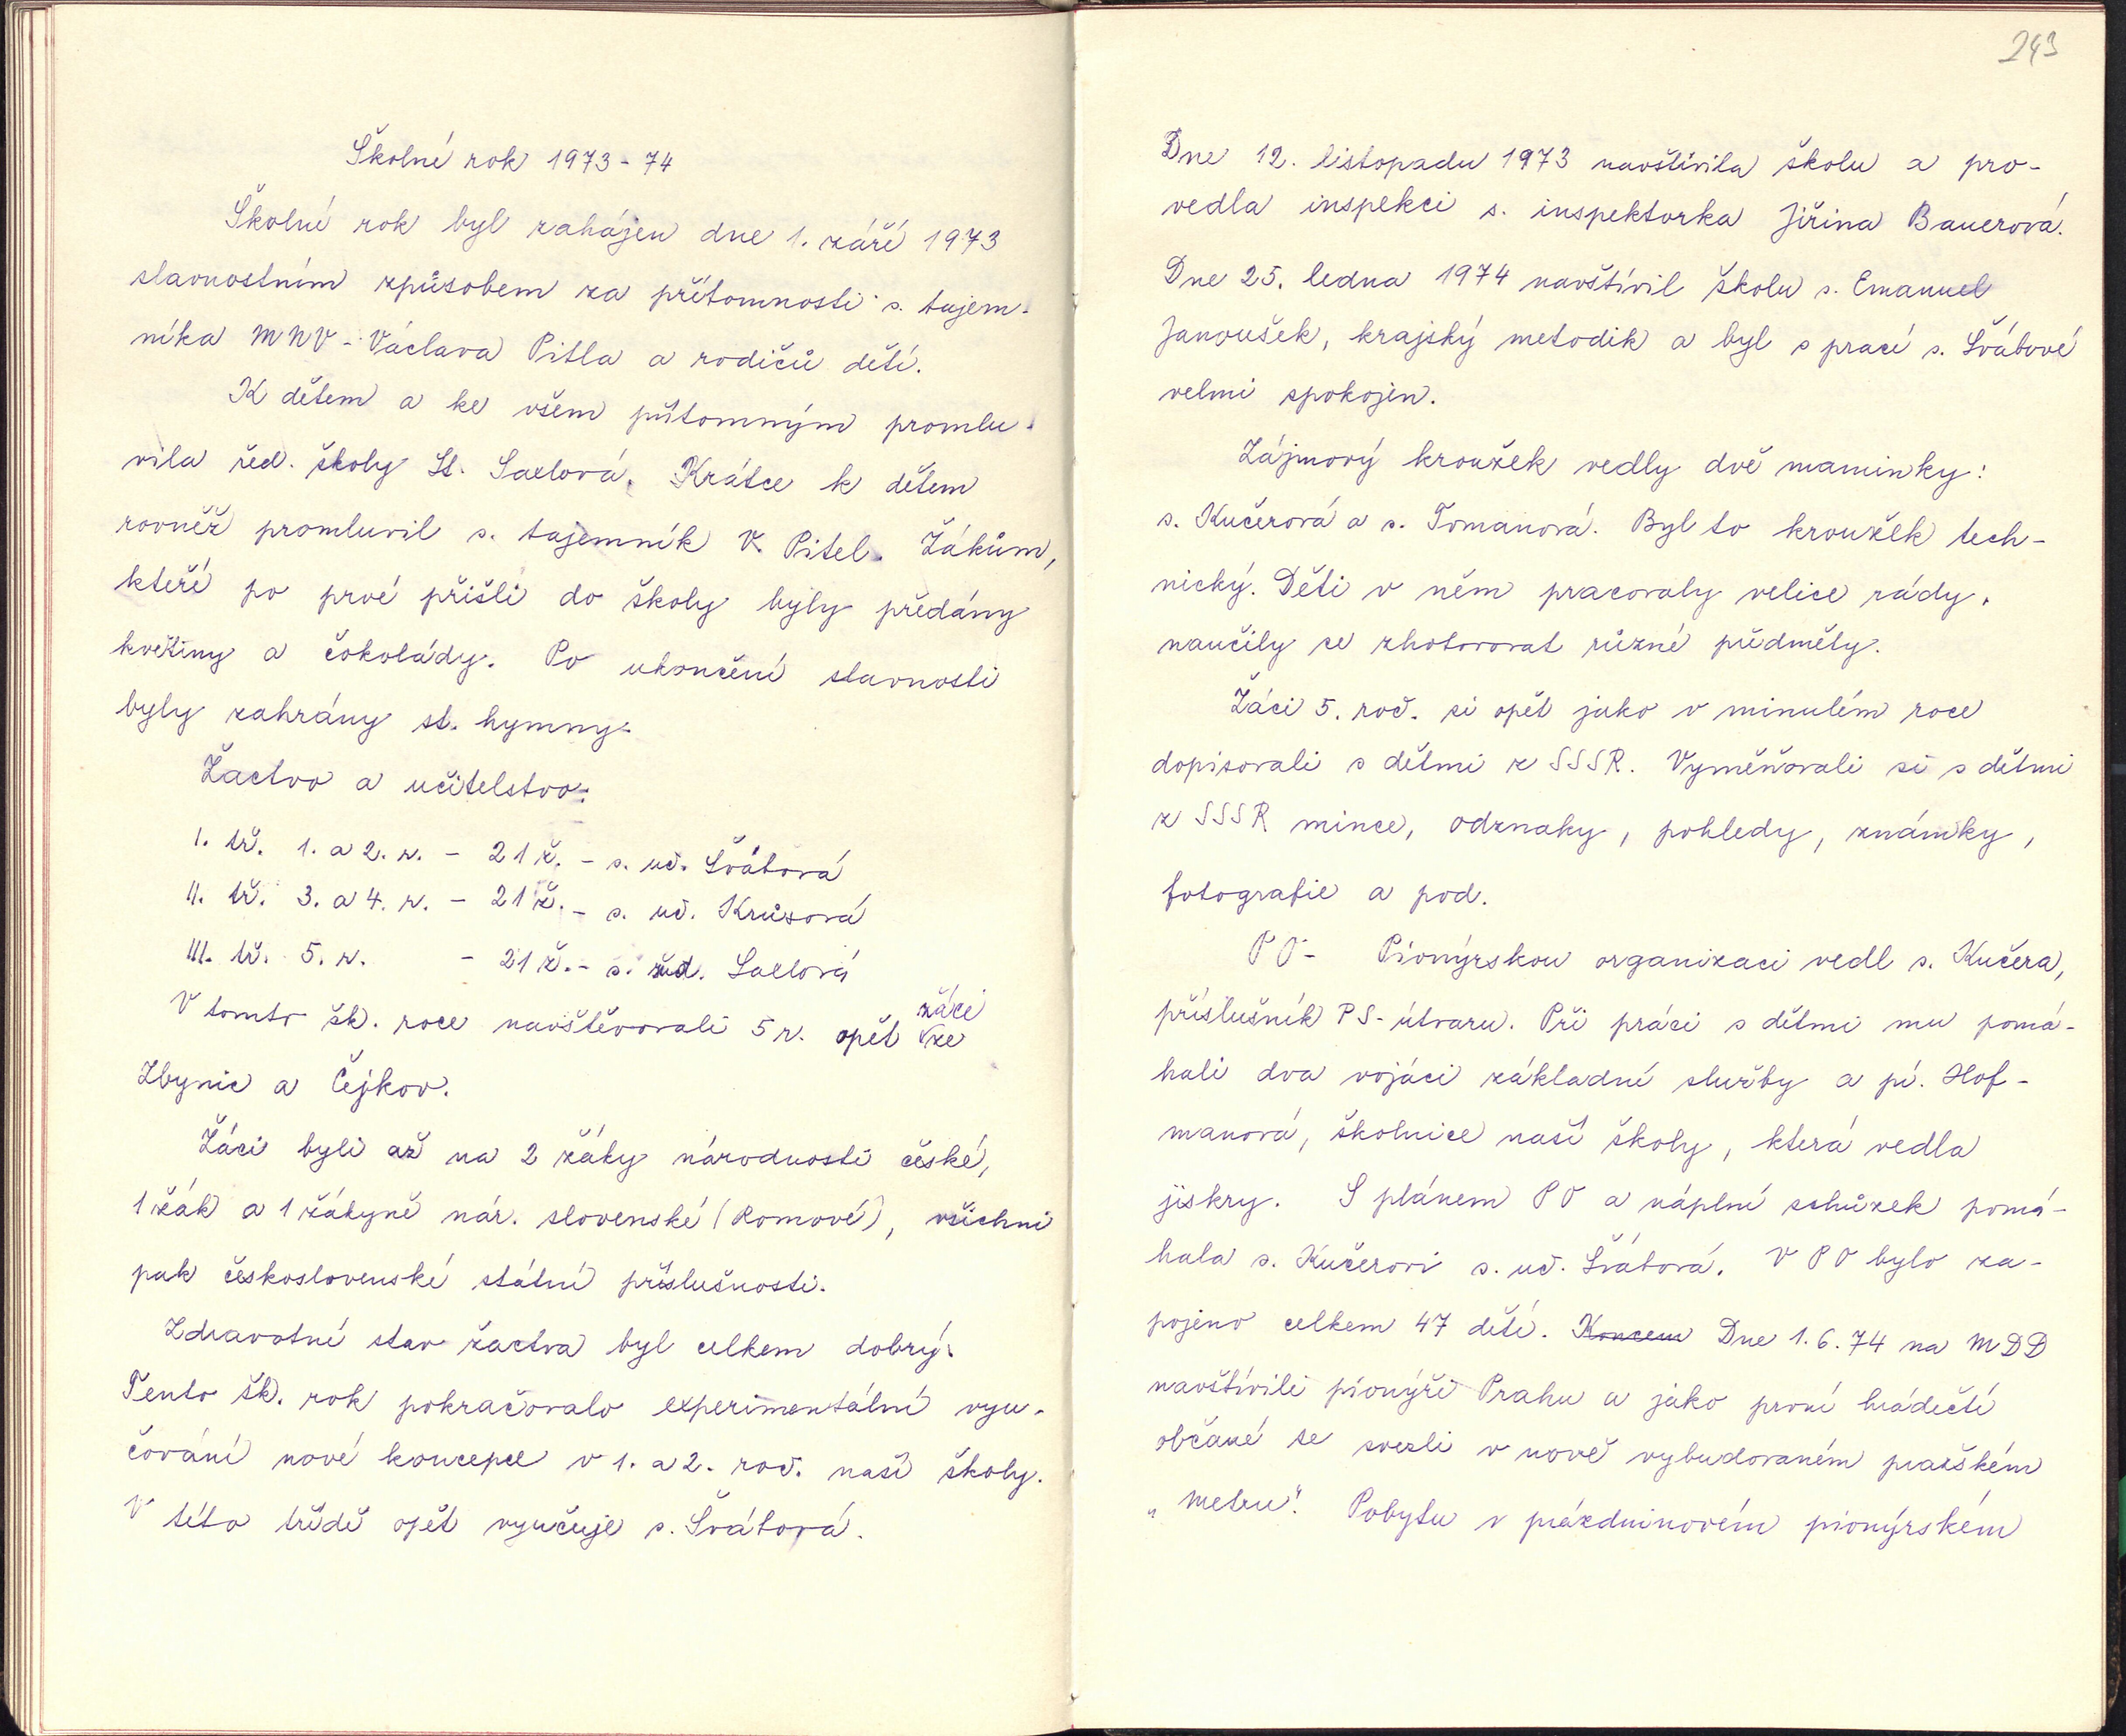 Školní rok 1973 - 74
Školní rok byl zahájen dne 1. září 1973
slavnostním způsobem za přítomnosti s. tajem-
níka MNV - Václava Pitla a rodičů dětí.
K dětem a ke všem přítomným promlu-
vila řed. školy St. Saxlová. Krátce k dětem
rovněž promluvil s. tajemník V. Pitel. Žákům,
kteří po prvé přišli do školy byly předány
květiny a čokolády. Po ukončení slavnosti
byly zahrány st. hymny.
Žactvo a učitelstvo:
I. tř. 1. a 2. r. - 21 ž. - s. uč. Švábová
II. tř. 3. a 4. r. - 21 ž. - s. uč. Krůsová
III. tř. 5. r. - 21 ž. - s. řed. Saxlová
V tomto šk. roce navštěvovali 5 r. opět žáci ze
Zbynic a Čejkov.
Žáci byli až na 2 žáky národnosti české,
1 žák a 1 žákyně nár. slovenské (Romové), všichni
pak československé státní příslušnosti.
Zdravotní stav žactva byl celkem dobrý.
Tento šk. rok pokračovalo experimentální vyu-
čování nové koncepce v 1. a 2. roč. naší školy.
V této třídě opět vyučuje s. Švábová.
243
Dne 12. listopadu 1973 navštívila školu a pro-
vedla inspekci s. inspektorka Jiřina Bauerová.
Dne 25. ledna 1974 navštívil školu s. Emanuel
Janoušek, krajský metodik a byl s prací s. Švábové
velmi spokojen.
Zájmový kroužek vedly dvě maminky:
s. Kučerová a s. Tomanová. Byl to kroužek tech-
nický. Děti v něm pracovaly velice rády,
naučily se zhotovovat různé předměty.
Žáci 5. roč. si opět jako v minulém roce
dopisovali s dětmi z SSSR. Vyměňovali si s dětmi
z SSSR mince, odznaky, pohledy, známky,
fotografie a pod.
PO - Pionýrskou organizaci vedl s. Kučera,
příslušník PS-útvaru. Při práci s dětmi mu pomá-
hali dva vojáci základní služby a pí. Hof-
manová, školnice naší školy, která vedla
jiskry. S plánem PO a náplní schůzek pomá-
hala s. Kučerovi s. uč. Švábová. V PO bylo za-
pojeno celkem 47 dětí. Koncem Dne 1. 6. 74 na MDD
navštívili pionýři Prahu a jako první hrádečtí
občané se svezli v nově vybudovaném pražském
„metru". Pobytu v prázdninovém pionýrském